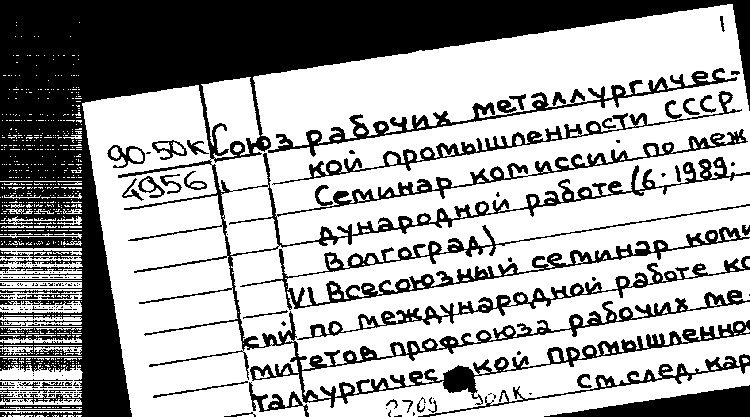 1
90-50К Союз рабочих металлургичес-
4956 кой промышленности СССР
Семинар комиссий по меж
дународной работе (6; 1989;
Волгоград).
VI Всесоюзный семинар коми
сий по международной работе ко
митетов профсоюза рабочих ме
таллургичес кой промышленнос
27.09 90лк. См.след.кар